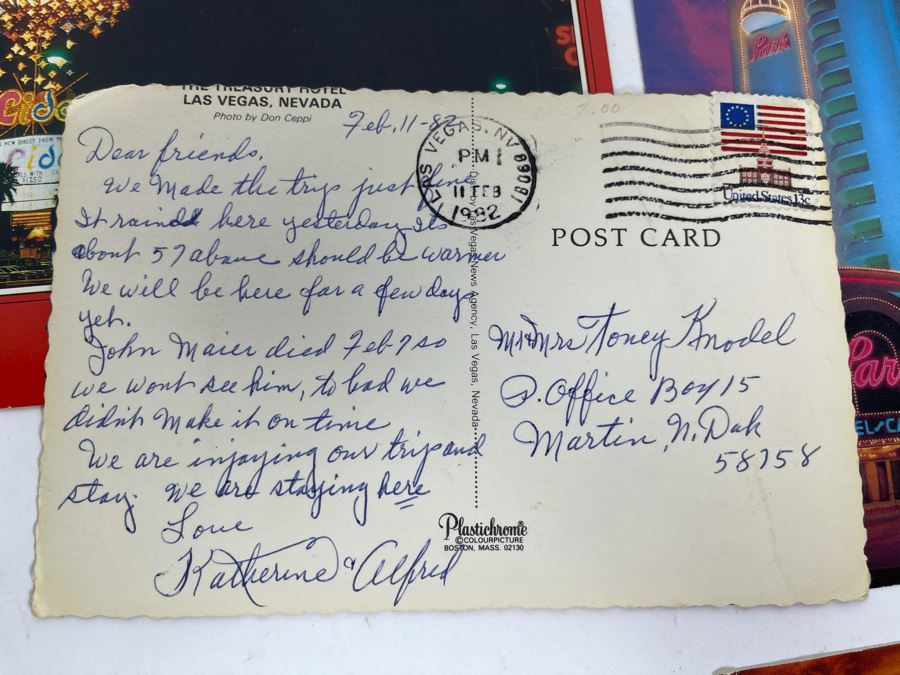 THE TREASURY HOTEL
LAS VEGAS, NEVADA
Photo by Don Ceppi
Feb, 11-82
Dear friends,
We Made the trip just fine
It rained here yesterday Its
about 57 above should be warmer
We will be here for a few days
yet.
John Maier died Feb 7 so
we wont see him, to bad we
didn't Make it on time
We are injoying our trip and
stay. We are staying here
Love
Katherine & Alfred
LAS VEGAS, NV 89081
PM
11 FEB
1982
United States 13c
POST CARD
Dist. by Las Vegas News Agency, Las Vegas, Nevada
Mr & Mrs Toney Knodel
P. Office Box 15
Martin, N. Dak
58758
Plastichrome®
©COLOURPICTURE
BOSTON, MASS. 02130
Park
Par
EL/CA
Lido